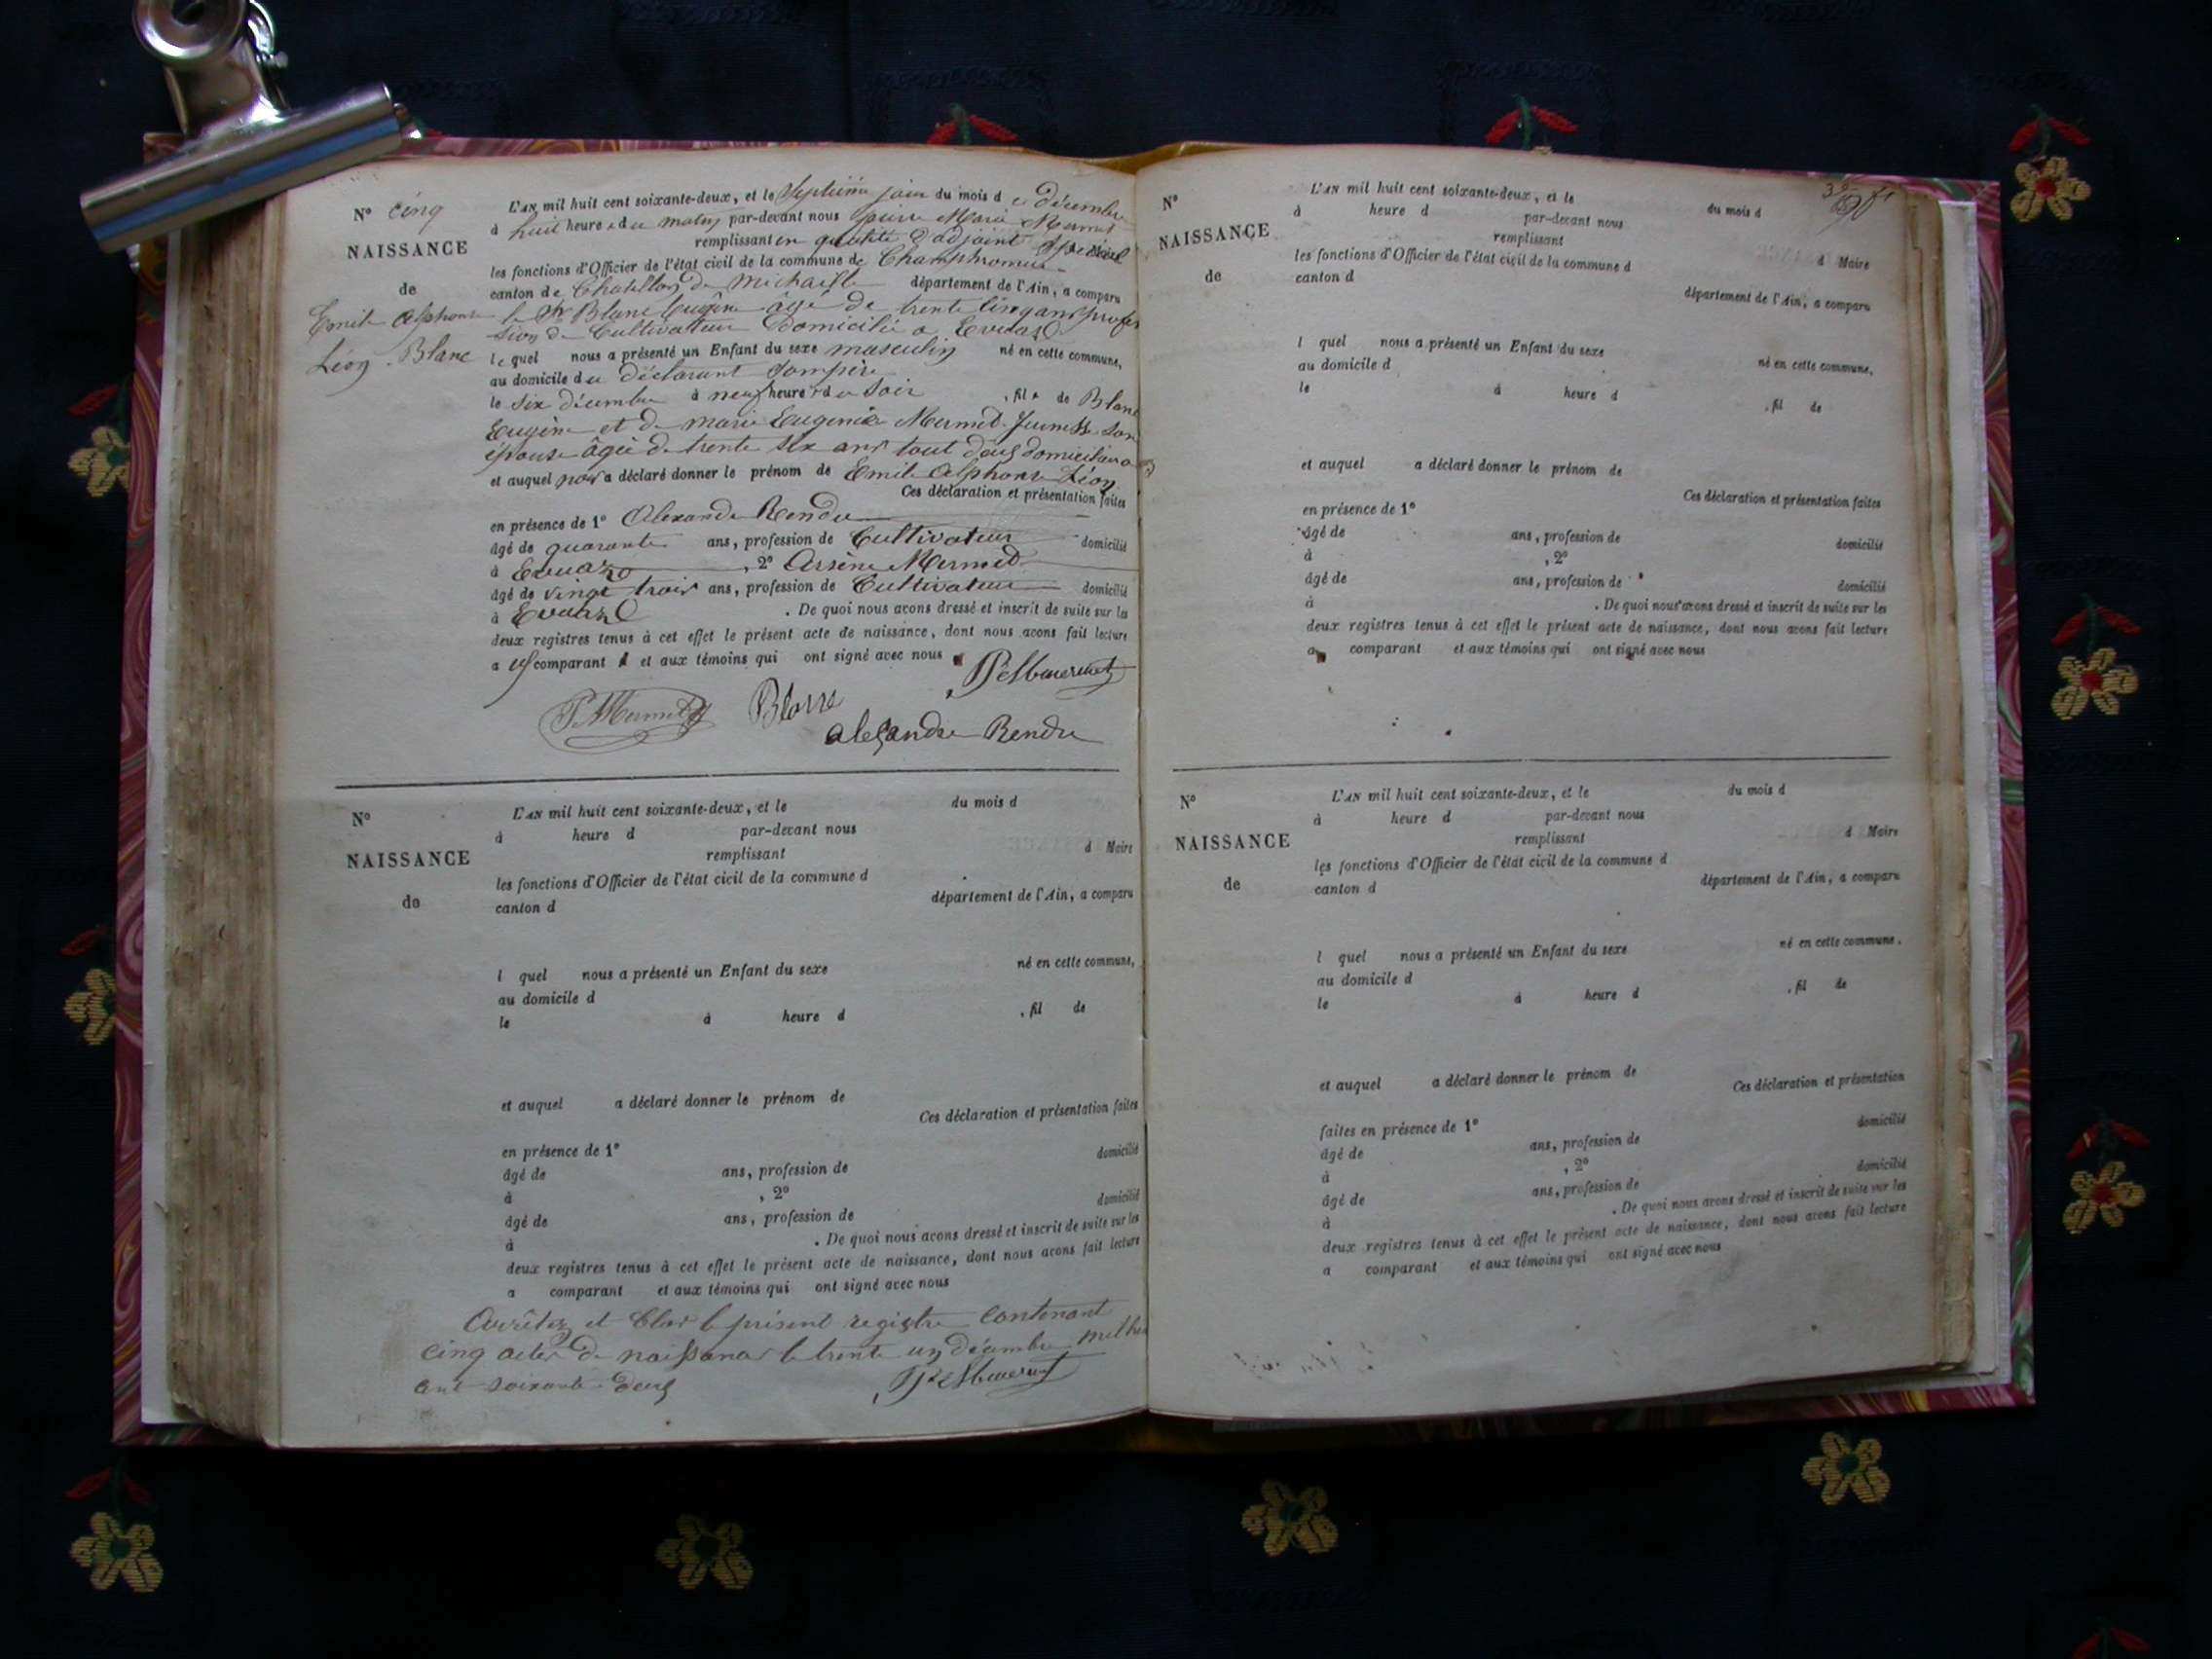 N° cinq
NAISSANCE
de
Emile Alphonse
Léon Blanc
L'AN mil huit cent soixante-deux, et le Septième jour du mois de décembre
à huit heures du matin par-devant nous pierre Marie Mermet
remplissant en qualité d'adjoint Spécial
les fonctions d'Officier de l'état civil de la commune de Champfromier
canton de Chatillon de Michaille département de l'Ain, a comparu
le Sr Blanc Eugène âgé de trente cinq ans profes
sion de Cultivateur Domicilié a Evuaz
lequel nous a présenté un Enfant du sexe masculin né en cette commune,
au domicile du déclarant
le Six décembre à neuf heures du Soir , fils de Blanc
Eugène et de marie Eugenie Mermet Son
épouse âgée de trente Six ans tout deux domiciliés a
et auquel a déclaré donner le prénom de Emile Alphonse Léon
Ces déclaration et présentation faites
en présence de 1° Alexandre Rendu
âgé de quarante ans, profession de Cultivateur domicilié
à Evuaz , 2° Arsène Mermet
âgé de vingt trois ans, profession de Cultivateur domicilié
à Evuaz . De quoi nous avons dressé et inscrit de suite sur les
deux registres tenus à cet effet le présent acte de naissance, dont nous avons fait lecture
a comparant et aux témoins qui ont signé avec nous
Blanc
alexandre Rendu
N°
NAISSANCE
de
L'AN mil huit cent soixante-deux, et le du mois d
à heure d par-devant nous
remplissant d Maire
les fonctions d'Officier de l'état civil de la commune d
canton d département de l'Ain, a comparu
l quel nous a présenté un Enfant du sexe né en cette commune,
au domicile d
le à heure d , fil de
et auquel a déclaré donner le prénom de
Ces déclaration et présentation faites
en présence de 1°
âgé de ans, profession de domicilié
à , 2°
âgé de ans, profession de domicilié
à . De quoi nous avons dressé et inscrit de suite sur les
deux registres tenus à cet effet le présent acte de naissance, dont nous avons fait lecture
a comparant et aux témoins qui ont signé avec nous
Arrêtez et Clos le présent registre Contenant
cinq actes de naissances le trente un décembre mil hui
cent soixante deux
N°
NAISSANCE
de
L'AN mil huit cent soixante-deux, et le du mois d
à heure d par-devant nous
remplissant d Maire
les fonctions d'Officier de l'état civil de la commune d
canton d département de l'Ain, a comparu
l quel nous a présenté un Enfant du sexe né en cette commune,
au domicile d
le à heure d , fil de
et auquel a déclaré donner le prénom de
Ces déclaration et présentation faites
en présence de 1°
âgé de ans, profession de domicilié
à , 2°
âgé de ans, profession de domicilié
à . De quoi nous avons dressé et inscrit de suite sur les
deux registres tenus à cet effet le présent acte de naissance, dont nous avons fait lecture
a comparant et aux témoins qui ont signé avec nous
N°
NAISSANCE
de
L'AN mil huit cent soixante-deux, et le du mois d
à heure d par-devant nous
remplissant d Maire
les fonctions d'Officier de l'état civil de la commune d
canton d département de l'Ain, a comparu
l quel nous a présenté un Enfant du sexe né en cette commune,
au domicile d
le à heure d , fil de
et auquel a déclaré donner le prénom de
Ces déclaration et présentation
faites en présence de 1°
âgé de ans, profession de domicilié
à , 2°
âgé de ans, profession de domicilié
à . De quoi nous avons dressé et inscrit de suite sur les
deux registres tenus à cet effet le présent acte de naissance, dont nous avons fait lecture
a comparant et aux témoins qui ont signé avec nous